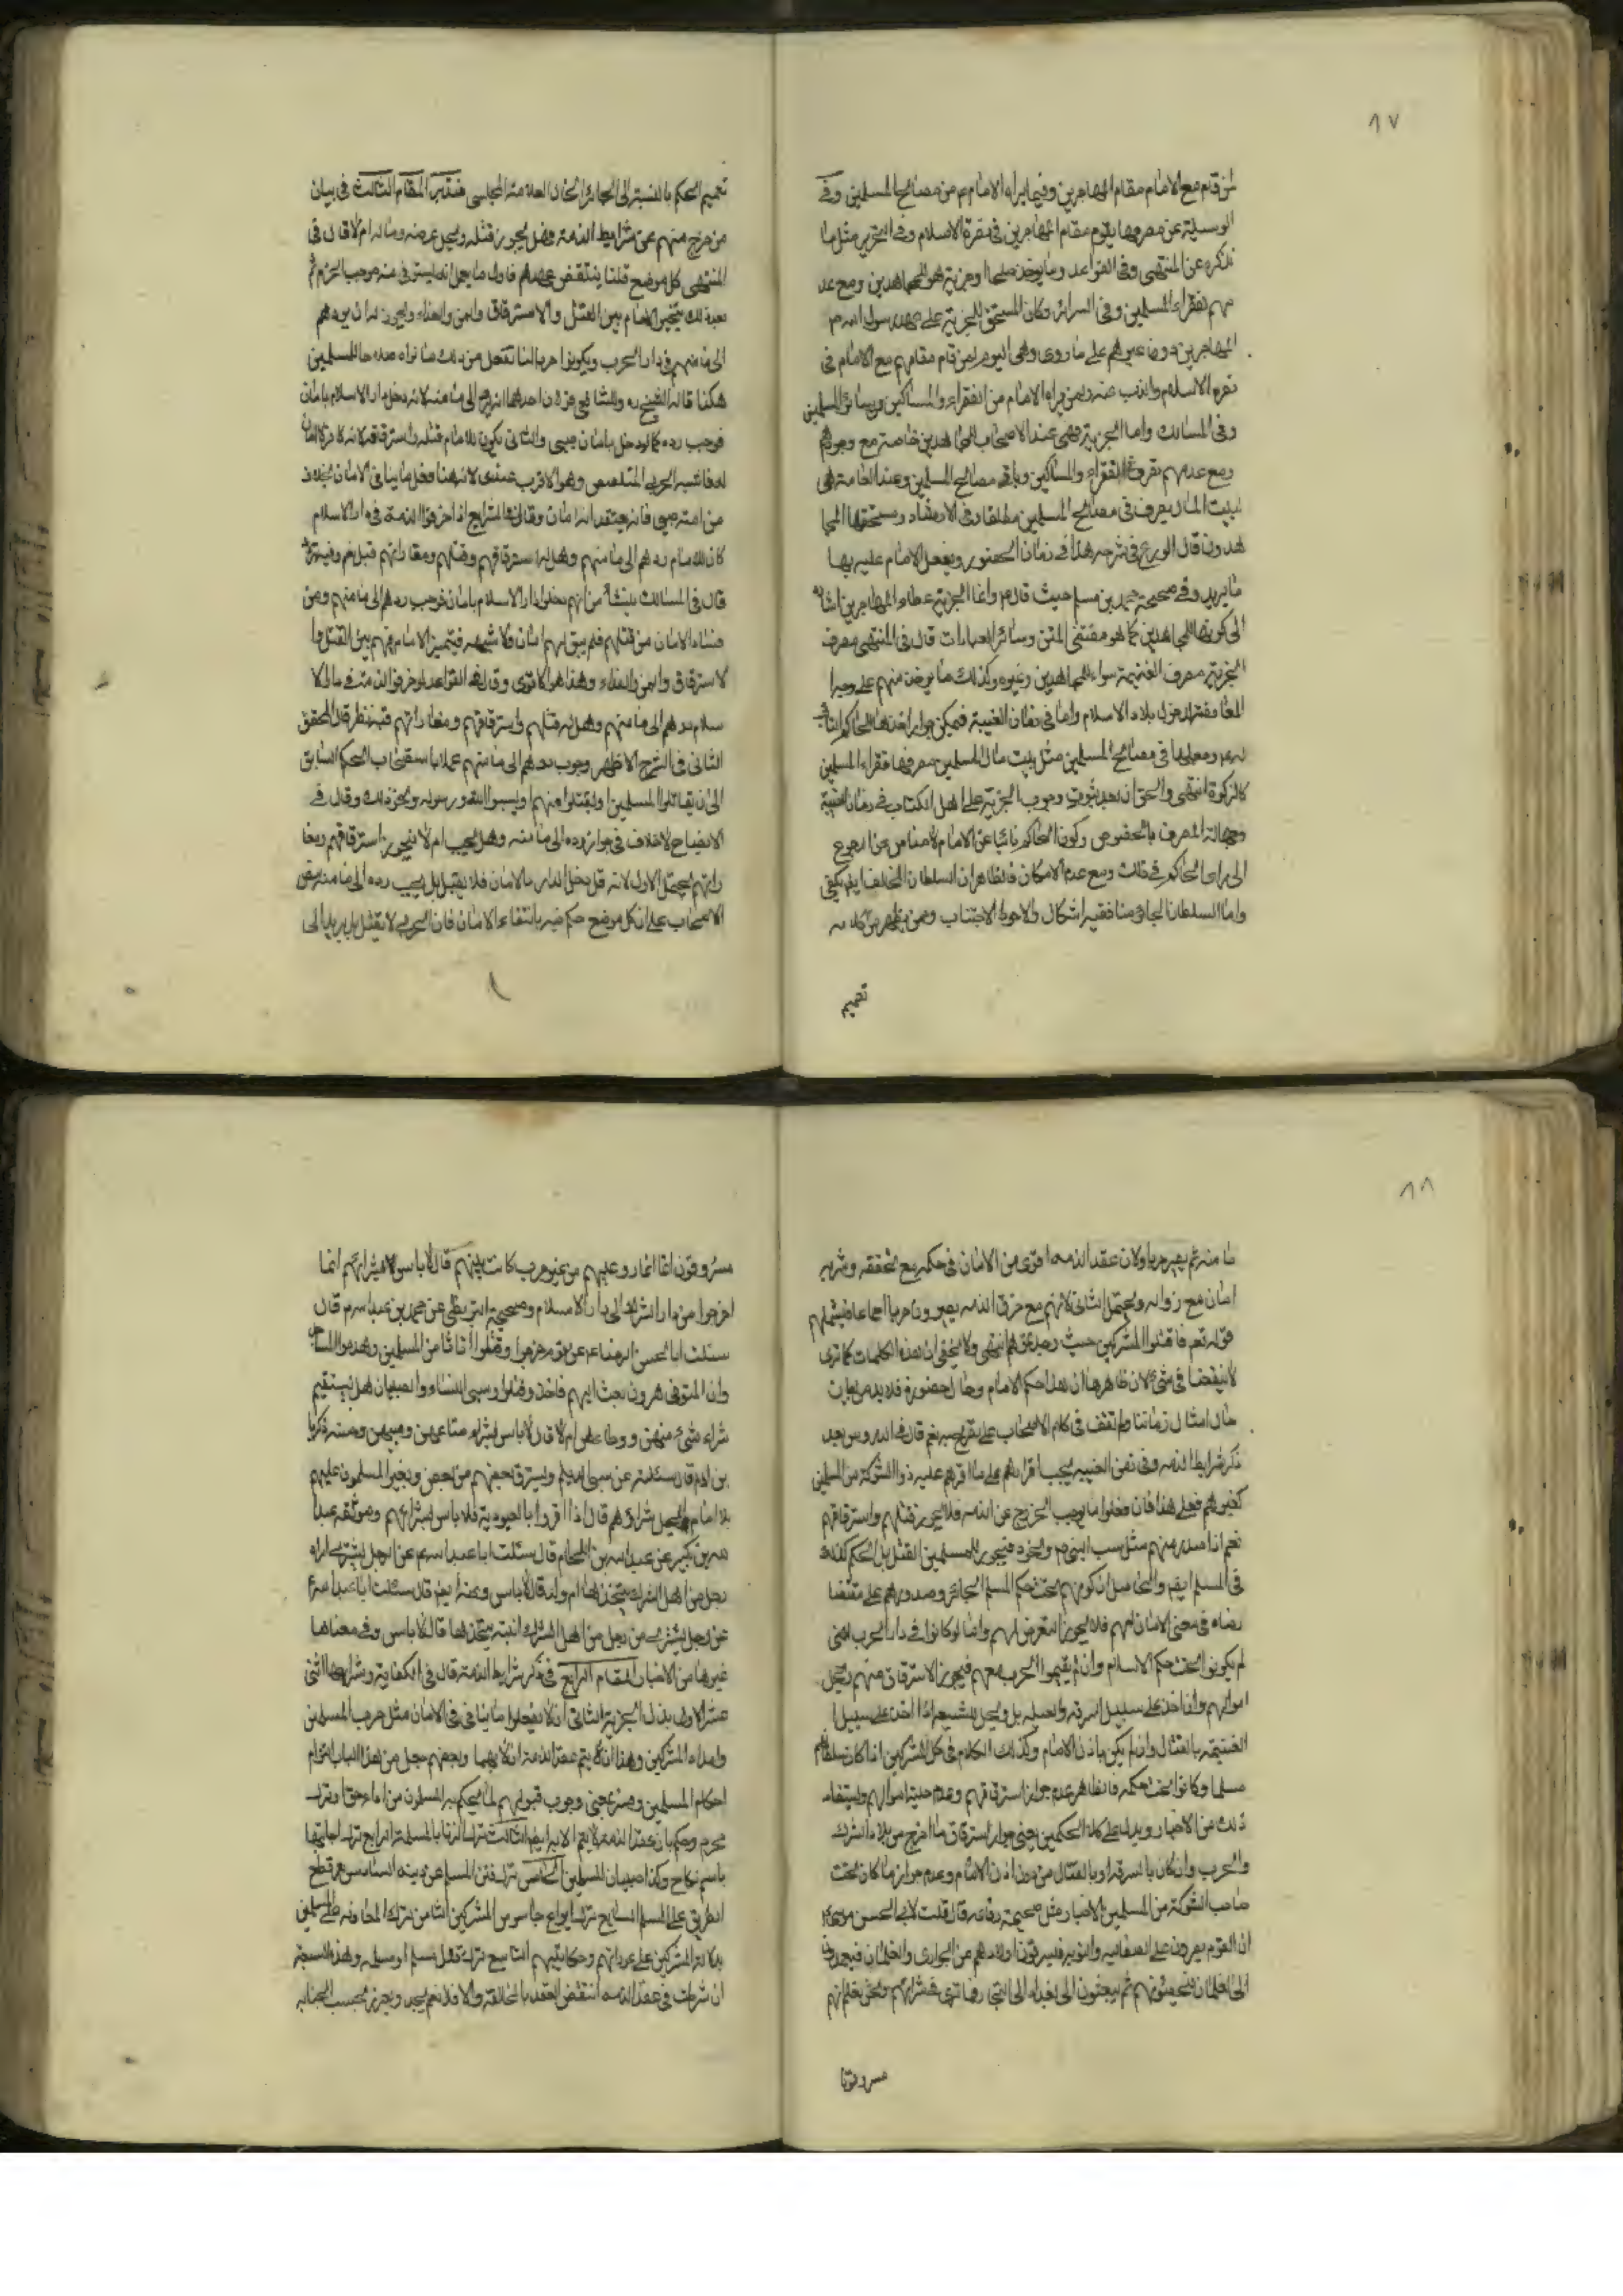 ٨٧
لمن قام مع الامام مقام المهاجرين وفيما يراه الامام ع من مصالح المسلمين وفى
الوسيلة عن مصرفها يقوم مقام المهاجرين فى نصرة الاسلام وفى التحرير مثل ما
نذكره عن المنتهى وفى القواعد وما يؤخذ صلحا او جزية فهو للمجاهدين ومع عد
مهم لفقراء المسلمين وفى السرائر وكان المستحق للجزية على عهد رسول الله ص
المهاجرين دون غيرهم على ما روى وهى اليوم لمن قام مقامهم مع الامام فى
نصرة الاسلام والذب عنه ولمن يراه الامام من الفقراء والمساكين وسائر المسلمين
وفى المسالك واما الجزية فهى عند الاصحاب للمجاهدين خاصة مع وجودهم
ومع عدمهم تصرف فى الفقراء والمساكين وباقى مصالح المسلمين وعند العامة هى
لبيت المال يصرف فى مصالح المسلمين مطلقا وفى الارشاد ومستحقها المجا
هدون قال الورع فى شرحه هذا فى زمان الحضور ويفعل الامام عليه بها
ما يريد وفى صحيحة محمد بن مسلم حيث قال ع وانما الجزية عطاء المهاجرين اشارة
الى كونها للمجاهدين كما هو مقتضى المتن وسائر العبارات قال فى المنتهى مصرف
الجزية مصرف الغنيمة سواء للمجاهدين وغيره وكذلك ما يؤخذ منهم على وجه ا
لمعاوضة لدخول بلاد الاسلام واما فى زمان الغيبة فيمكن جواز اخذها للحاكم النائب
له ع وصرفها فى مصالح المسلمين مثل بيت مال المسلمين مصرفها فقراء المسلمين
كالزكوة انتهى والحق ان بعد ثبوت وجوب الجزية على اهل الكتاب فى زمان الغيبة
وجهالة المصرف بالخصوص وكون الحاكم نائبا عن الامام لا مناص عن الرجوع
الى راى الحاكم فى ذلك ومع عدم الامكان فالظاهر ان السلطان المخالف ايضا يكفى
واما السلطان الجائر منا ففيه اشكال والاحوط الاجتناب ومن يظهر من كلامه
تعميم
تعميم الحكم بالنسبة الى الجائر الخال العلامة المجلسى فتدبر المقام الثالث فى بيان
من خرج منهم عن شرايط الذمة فهل يجوز قتله ويحل عرضه وماله ام لا قال فى
المنتهى كل موضع قلنا ينتقض عهدهم فاول ما يعمل انه يستوفى منه موجب الجرم ثم
بعد ذلك يتخير الامام بين القتل والاسترقاق والمن والفداء ويجوز له ان يردهم
الى مامنهم فى دار الحرب ويكونوا حربا لنا تفعل من ذلك ما تراه صلاحا للمسلمين
هكذا قاله الشيخ ره وللشافعى قولان احدهما انه يرد الى مامنه لانه دخل دار الاسلام بامان
فوجب رده كما لو دخل بامان صبى والثانى يكون للامام قتله واسترقاقه لانه كافر لا امان
له فاشبه الحربى المتلصص وهو الاقرب عندى لانه هنا فعل ما ينافى الامان بخلاف
من امنه صبى فانه يعتقد انه امان وقال فى الشرايع اذا خرقوا الذمة فى دار الاسلام
كان للامام ردهم الى مامنهم وهل له استرقاقهم وقتلهم ومفاداتهم قيل نعم وفيه تردد
قال فى المسالك ينشأ من انهم دخلوا دار الاسلام بامان فوجب ردهم الى مامنهم ومن
فساد الامان من قبلهم فلم يبق لهم امان ولا شبهة فيتخير الامام فيهم بين القتل وا
لاسترقاق والمن والفداء وهذا هو الاقوى وقال فى القواعد لو خرقوا الذمة فى دار الا
سلام ردهم الى مامنهم وهل له قتلهم واسترقاقهم ومفاداتهم فيه نظر قال المحقق
الثانى فى الشرح الاظهر وجوب ردهم الى مامنهم عملا باستصحاب الحكم السابق
الى ان يقاتلوا المسلمين او يقتلوا منهم او يسبوا الله ورسوله ونحو ذلك وقال فى
الايضاح لا خلاف فى جواز رده الى مامنه وهل يجب ام لا فيجوز استرقاقهم ومفا
داتهم يحتمل الاول لانه قد دخل الدار بالامان فلا يقتل بل يجب رده الى مامنه ونص
الاصحاب على ان كل موضع حكم فيه بانتفاء الامان فان الحربى لا يقتل بل يرد الى
٨٨
مامنه ثم يصير حربا ولان عقد الذمة اقوى من الامان فى حكمه مع تحققه وشبهه
امان مع زواله ويحتمل الثانى لانهم مع خرق الذمة يصيرون حربا اجماعا فيشملهم
قوله تعم فاقتلوا المشركين حيث وجدتموهم انتهى ولا يخفى ان هذه الكلمات كما ترى
لا ينفعنا فى شئ لان ظاهرها ان هذا حكم الامام وحال حضوره فلا بد من بيان
حال امثال زماننا ولم نقف فى كلام الاصحاب على تصريح به نعم قال فى الدروس بعد
ذكر شرايط الذمة وفى زمن الغيبة يجب اقرارهم على ما اقرهم عليه ذو الشوكة من المسلمين
كغيرهم فعلى هذا فان فعلوا ما يوجب الخروج عن الذمة فلا يجوز قتلهم واسترقاقهم
نعم اذا صدر منهم مثل سب النبى ص ونحوه فيجوز للمسلمين القتل بل الحكم كذلك
فى المسلم ايضا والحاصل ان كونهم تحت حكم المسلم الجائر وصدورهم على مقتضا
رضاه فى معنى الامان لهم فلا يجوز التعرض لهم واما لو كانوا فى دار الحرب اعنى
لم يكونوا تحت حكم الاسلام وان لم يقيموا الحرب معهم فيجوز الاسترقاق منهم ويحل
اموالهم وان اخذ على سبيل السرقة والحيلة بل ويحل للشيعة اذا اخذ على سبيل ا
لغنيمة بالقتال وان لم يكن باذن الامام وكذلك الكلام فى كل المشركين اذا كان سلطانهم
مسلما وكانوا تحت حكمه فالظاهر عدم جواز استرقاقهم وعدم حلية اموالهم ويستفاد
ذلك من الاخبار ويدل على كلا الحكمين يعنى جواز استرقاق ما اخرج من بلاد الشرك
والحرب وان كان بالسرقة او بالقتال من دون اذن الامام وعدم جواز ما كان تحت
صاحب الشوكة من المسلمين الاخبار مثل صحيحة رفاعة قال قلت لابى الحسن موسى ع
ان القوم يغيرون على الصقالبة والنوبة فيسرقون اولادهم من الجوارى والغلمان فيعمدون
الى الغلمان فيخصونهم ثم يبعثون الى بغداد الى التجار فما ترى فى شرائهم ونحن نعلم انهم
مسروقون
مسروقون انما اغاروا عليهم من غير حرب كانت بينهم قال لا باس بشرائهم انما
اخرجوا من دار الشرك الى دار الاسلام وصحيحة البزنطى عن محمد بن عبدالله قال
سئلت ابا الحسن الرضا ع عن قوم خرجوا وقتلوا اناسا من المسلمين وهدموا المساجد
وان المتوفى هرون بعث اليهم فاخذوا وقتلوا وسبى النساء والصبيان هل يستقيم
شراء شئ منهن ووطئهن ام لا قال لا باس بشراء متاعهن وسبيهن وحسنة زكريا
بن ادم قال سئلته عن سبى الديلم ويسترق بعضهم من بعض ويغير المسلمون عليهم
بلا امام ايحل شراؤهم قال اذا اقروا بالعبودية فلا باس بشرائهم وموثقة عبدا
لله بن بكير عن عبدالله بن اللحام قال سئلت ابا عبدالله ع عن الرجل يشترى امراة
رجل من اهل الشرك يتخذها ام ولد قال لا باس وعنه ايضا قال سئلت ابا عبدالله ع
عن رجل يشترى من رجل من اهل الشرك ابنته يتخذها قال لا باس وفى معناها
غيرها من الاخبار المقام الرابع فى ذكر شرايط الذمة قال فى الكفاية وشرايطها اثنى
عشر الاول بذل الجزية الثانى ان لا يفعلوا ما ينافى الامان مثل حرب المسلمين
وامداد المشركين وهذا ان لا يتم عقد الذمة الا بهما وبعضهم جعل من هذا الباب التزام
احكام المسلمين وفسر بمعنى وجوب قبولهم لما يحكم به المسلمون من اداء حق او ترك
محرم وحكم بان عقد الذمة لا يتم الا به ايضا الثالث ترك الزنا بالمسلمة الرابع ترك اصابتها
باسم نكاح وكذا صبيان المسلمين الخامس ترك فتن المسلم عن دينه السادس ترك قطع
الطريق على المسلم السابع ترك ايواء جاسوس المشركين الثامن ترك المعاونة على المسلمين
بدلالة المشركين على عوراتهم ومكاتبتهم التاسع ترك قتل مسلم او مسلمة وهذه السبعة
ان شرطت فى عقد الذمة انتقض العقد بالمخالفة والا فلا نعم يحد ويعزر بحسب الجناية